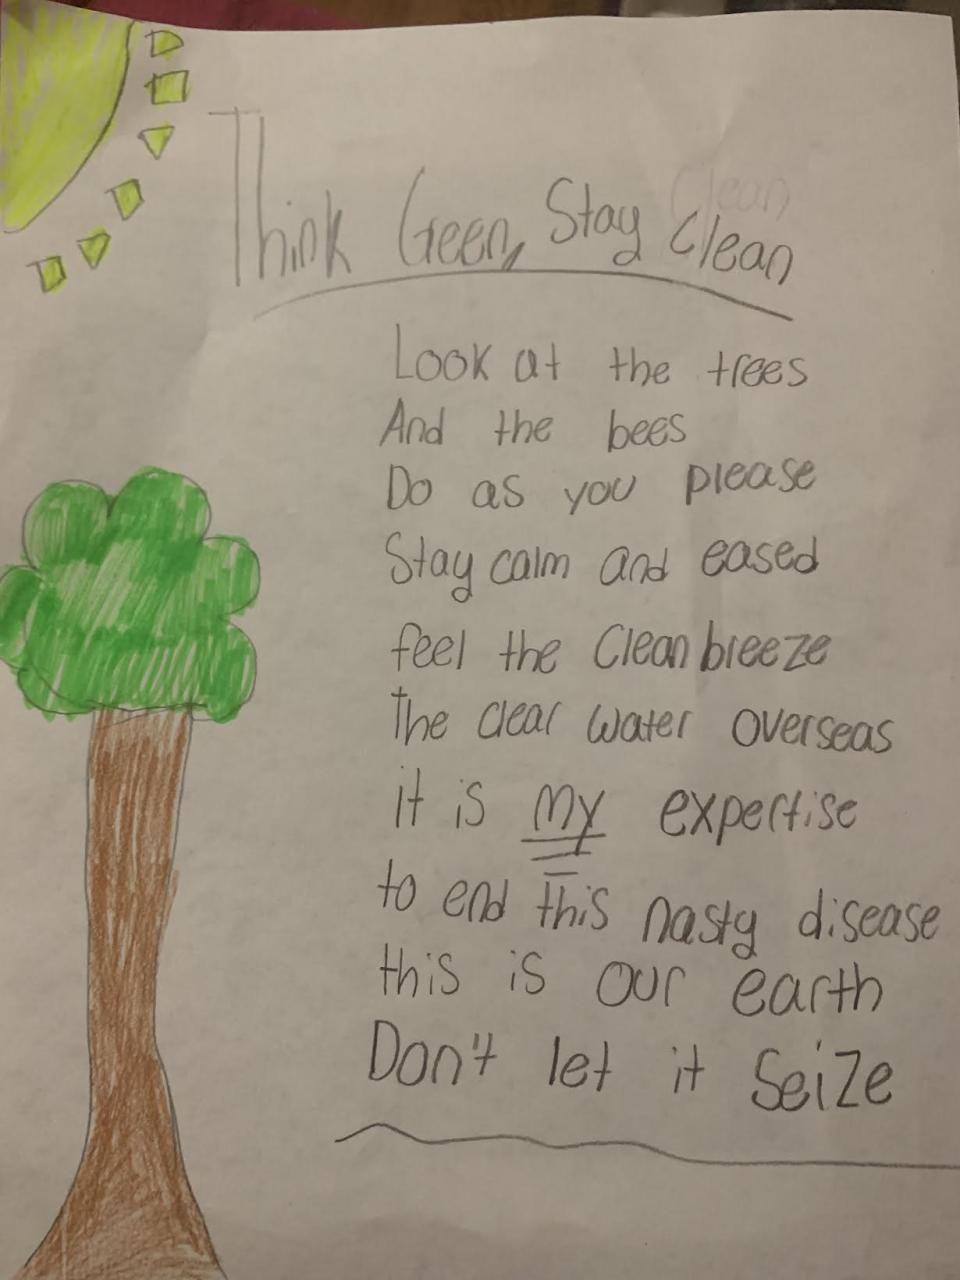 Think Green, Stay Clean
Look at the trees
And the bees
Do as you please
Stay calm and eased
feel the Clean breeze
The clear water overseas
it is my expertise
to end this nasty disease
this is our earth
Don't let it Seize